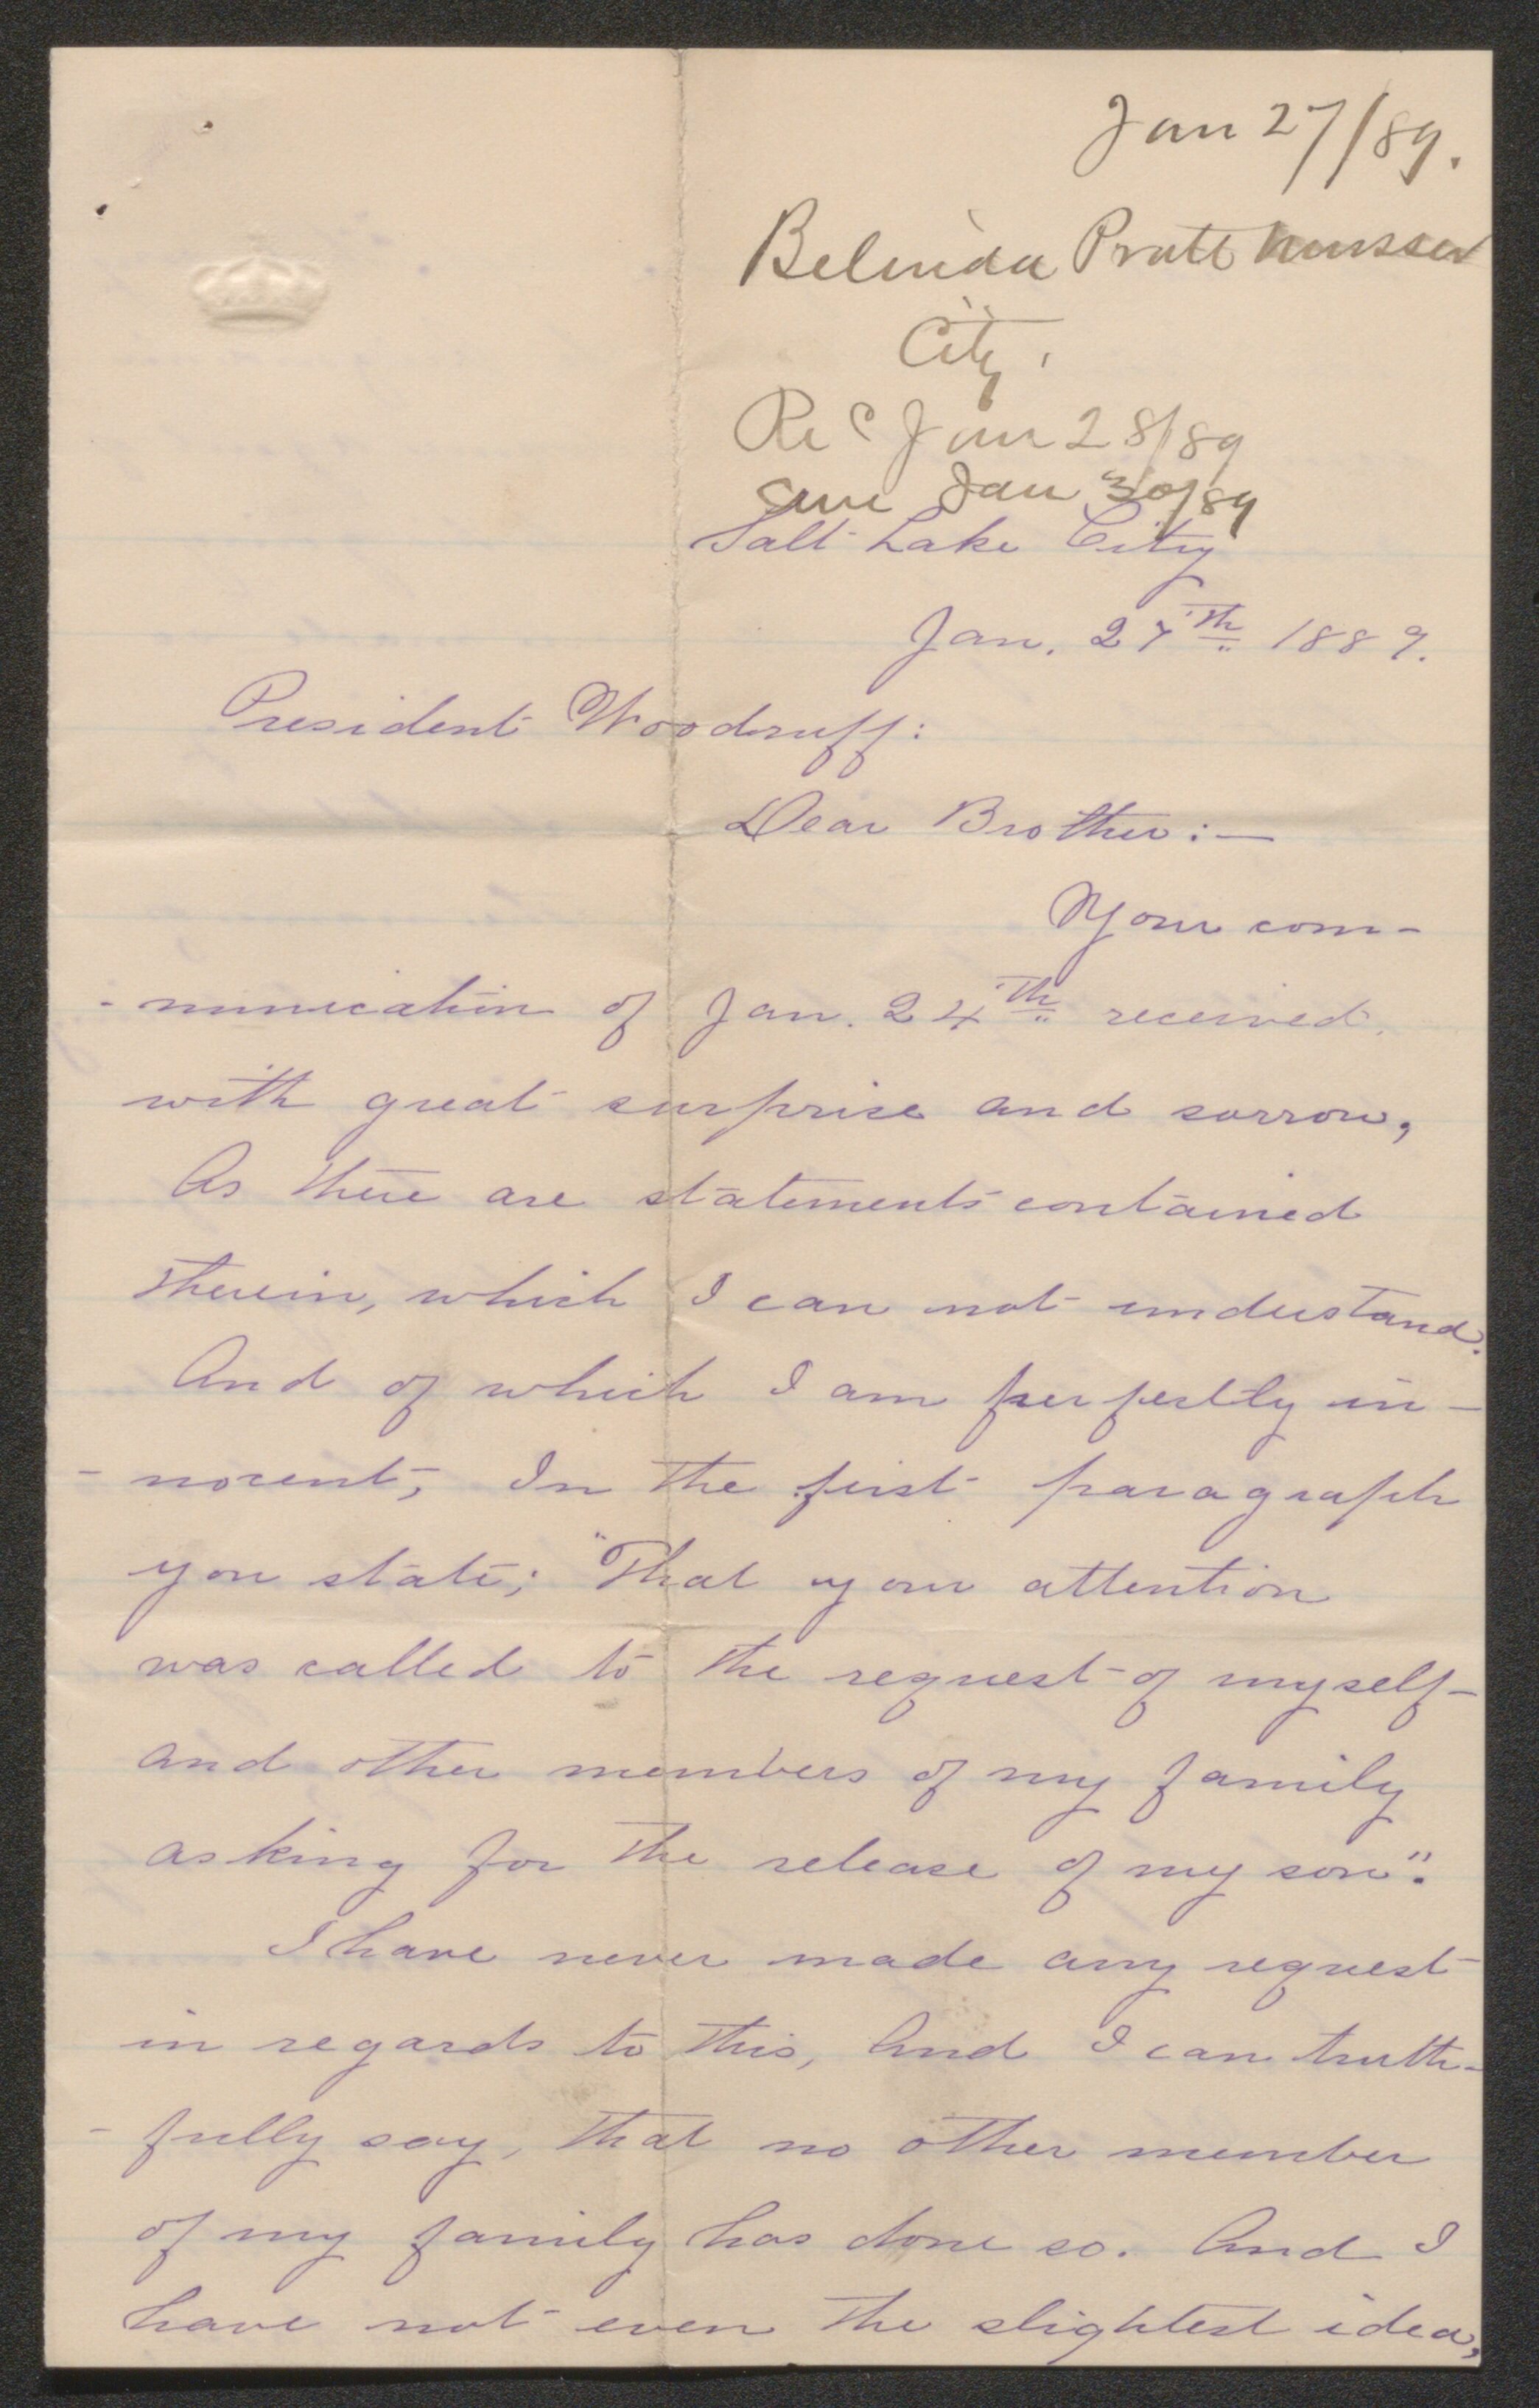 Jan 27/89.
Belinda Pratt Musser
City.
Rec Jan 28/89
Jan 30/89
Salt Lake City
Jan. 27th 1889.
President Woodruff:
Dear Brother:—
Your com-
-munication of Jan. 24th received.
with great surprise and sorrow,
As there are statements contained
therein, which I can not understand.
And of which I am perfectly in-
-nocent, In the first paragraph
you state; "That your attention
was called to the request of myself-
and other members of my family
asking for the release of my son".
I have never made any request
in regards to this, And I can truth-
-fully say, that no other member
of my family has done so. And I
have not even the slightest idea,